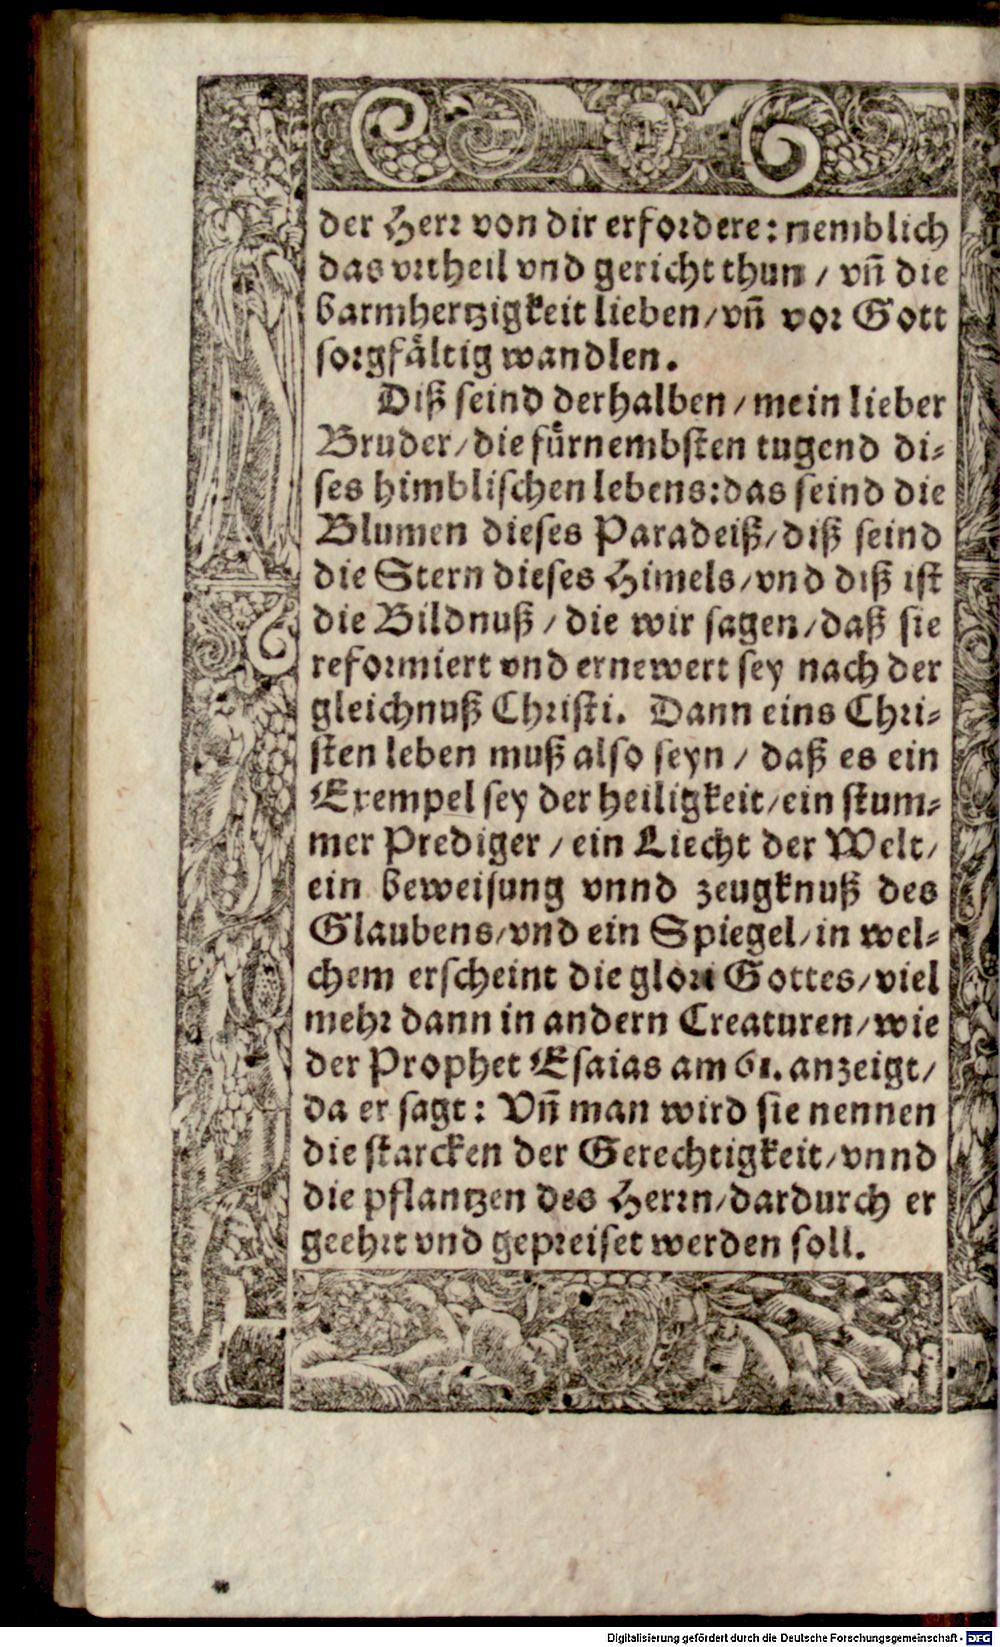 der Herr von dir erfordere: nemblich
das vrtheil vnd gericht thun / vñ die
barmhertzigkeit lieben / vñ vor Gott
sorgfåltig wandlen.
Diß seind derhalben / mein lieber
Bruder / die fůrnembsten tugend di-
ses himblischen lebens: das seind die
Blumen dieses Paradeiß / diß seind
die Stern dieses Himels / vnd diß ist
die Bildnuß / die wir sagen / daß sie
reformiert vnd ernewert sey nach der
gleichnuß Christi. Dann eins Chri-
sten leben muß also seyn / daß es ein
Exempel sey der heiligkeit / ein stum-
mer Prediger / ein Liecht der Welt /
ein beweisung vnnd zeugknuß des
Glaubens / vnd ein Spiegel / in wel-
chem erscheint die glori Gottes / viel
mehr dann in andern Creaturen / wie
der Prophet Esaias am 61. anzeigt /
da er sagt: Vñ man wird sie nennen
die starcken der Gerechtigkeit / vnnd
die pflantzen des Herrn / dardurch er
geehrt vnd gepreiset werden soll.
Digitalisierung gefördert durch die Deutsche Forschungsgemeinschaft - DFG